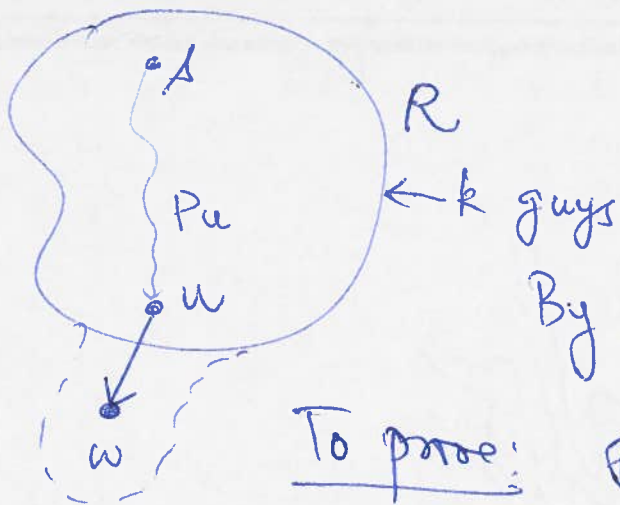 s
R
Pu
← k guys
u
By
w
To prove: